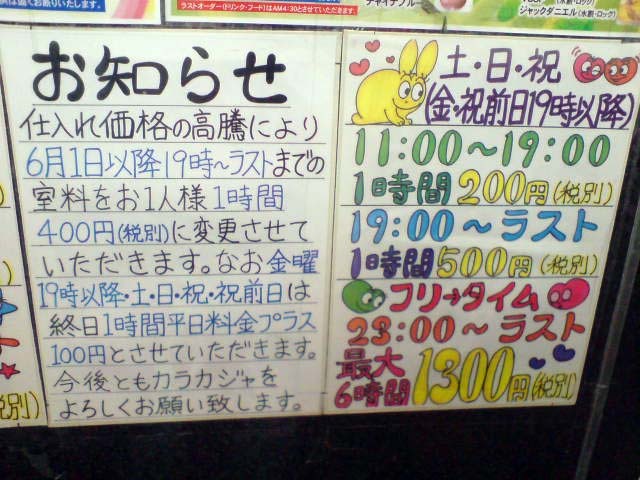 ラストオーダー(ドリンク・フード)はAM4:30とさせていただきます。
チャイナブルー
ジャックダニエル(水割・ロック)
お知らせ
仕入れ価格の高騰により
6月1日以降19時〜ラストまでの
室料をお1人様1時間
400円(税別)に変更させて
いただきます。なお金曜
19時以降・土・日・祝・祝前日は
終日1時間平日料金プラス
100円とさせていただきます。
今後ともカラカジャを
よろしくお願い致します。
土・日・祝
(金・祝前日19時以降)
11:00〜19:00
1時間200円(税別)
19:00〜ラスト
1時間500円(税別)
フリ→タイム
23:00〜ラスト
最大
6時間1300円(税別)
税別)